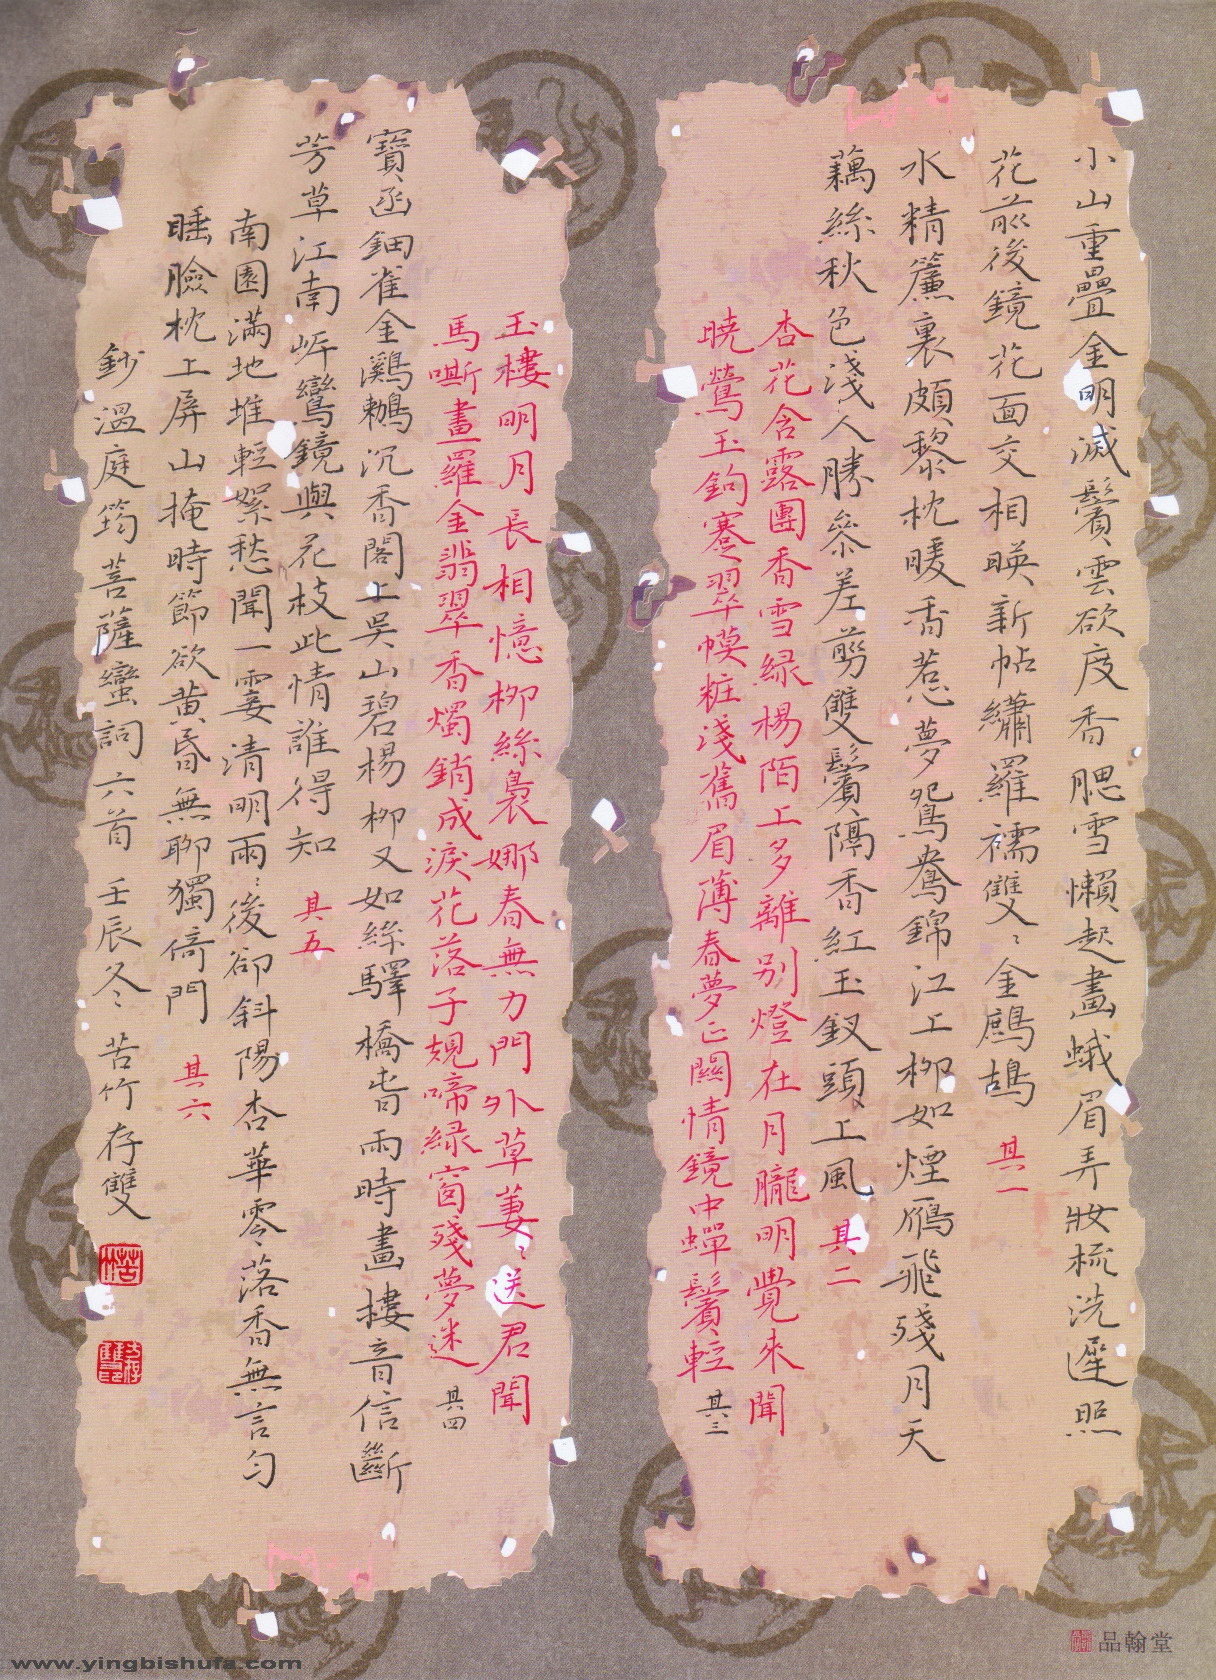 小山重疊金明滅鬢雲欲度香腮雪懶起畫蛾眉弄妝梳洗遲照
花前後鏡花面交相暎新帖繡羅襦雙〻金鷓鴣 其一
水精簾裏頗黎枕暖香惹夢鴛鴦錦江上柳如煙雁飛殘月天
藕絲秋色淺人勝參差剪雙鬢隔香紅玉釵頭上風 其二
杏花含露團香雪緑楊陌上多離別燈在月朧明覺來聞
曉鶯玉鉤褰翠幙粧淺舊眉薄春夢正關情鏡中蟬鬢輕 其三
玉樓明月長相憶柳絲裊娜春無力門外草萋〻送君聞
馬嘶畫羅金翡翠香燭銷成淚花落子規啼緑窗殘夢迷 其四
寶函鈿雀金鸂鶒沉香閣上吳山碧楊柳又如絲驛橋春雨時畫樓音信斷
芳草江南岸鸞鏡與花枝此情誰得知 其五
南園滿地堆輕絮愁聞一霎清明雨〻後卻斜陽杏華零落香無言勻
睡臉枕上屏山掩時節欲黄昏無聊獨倚門 其六
鈔溫庭筠菩薩蠻詞六首 壬辰冬〻 苦竹存雙
品翰堂
www.yingbishufa.com